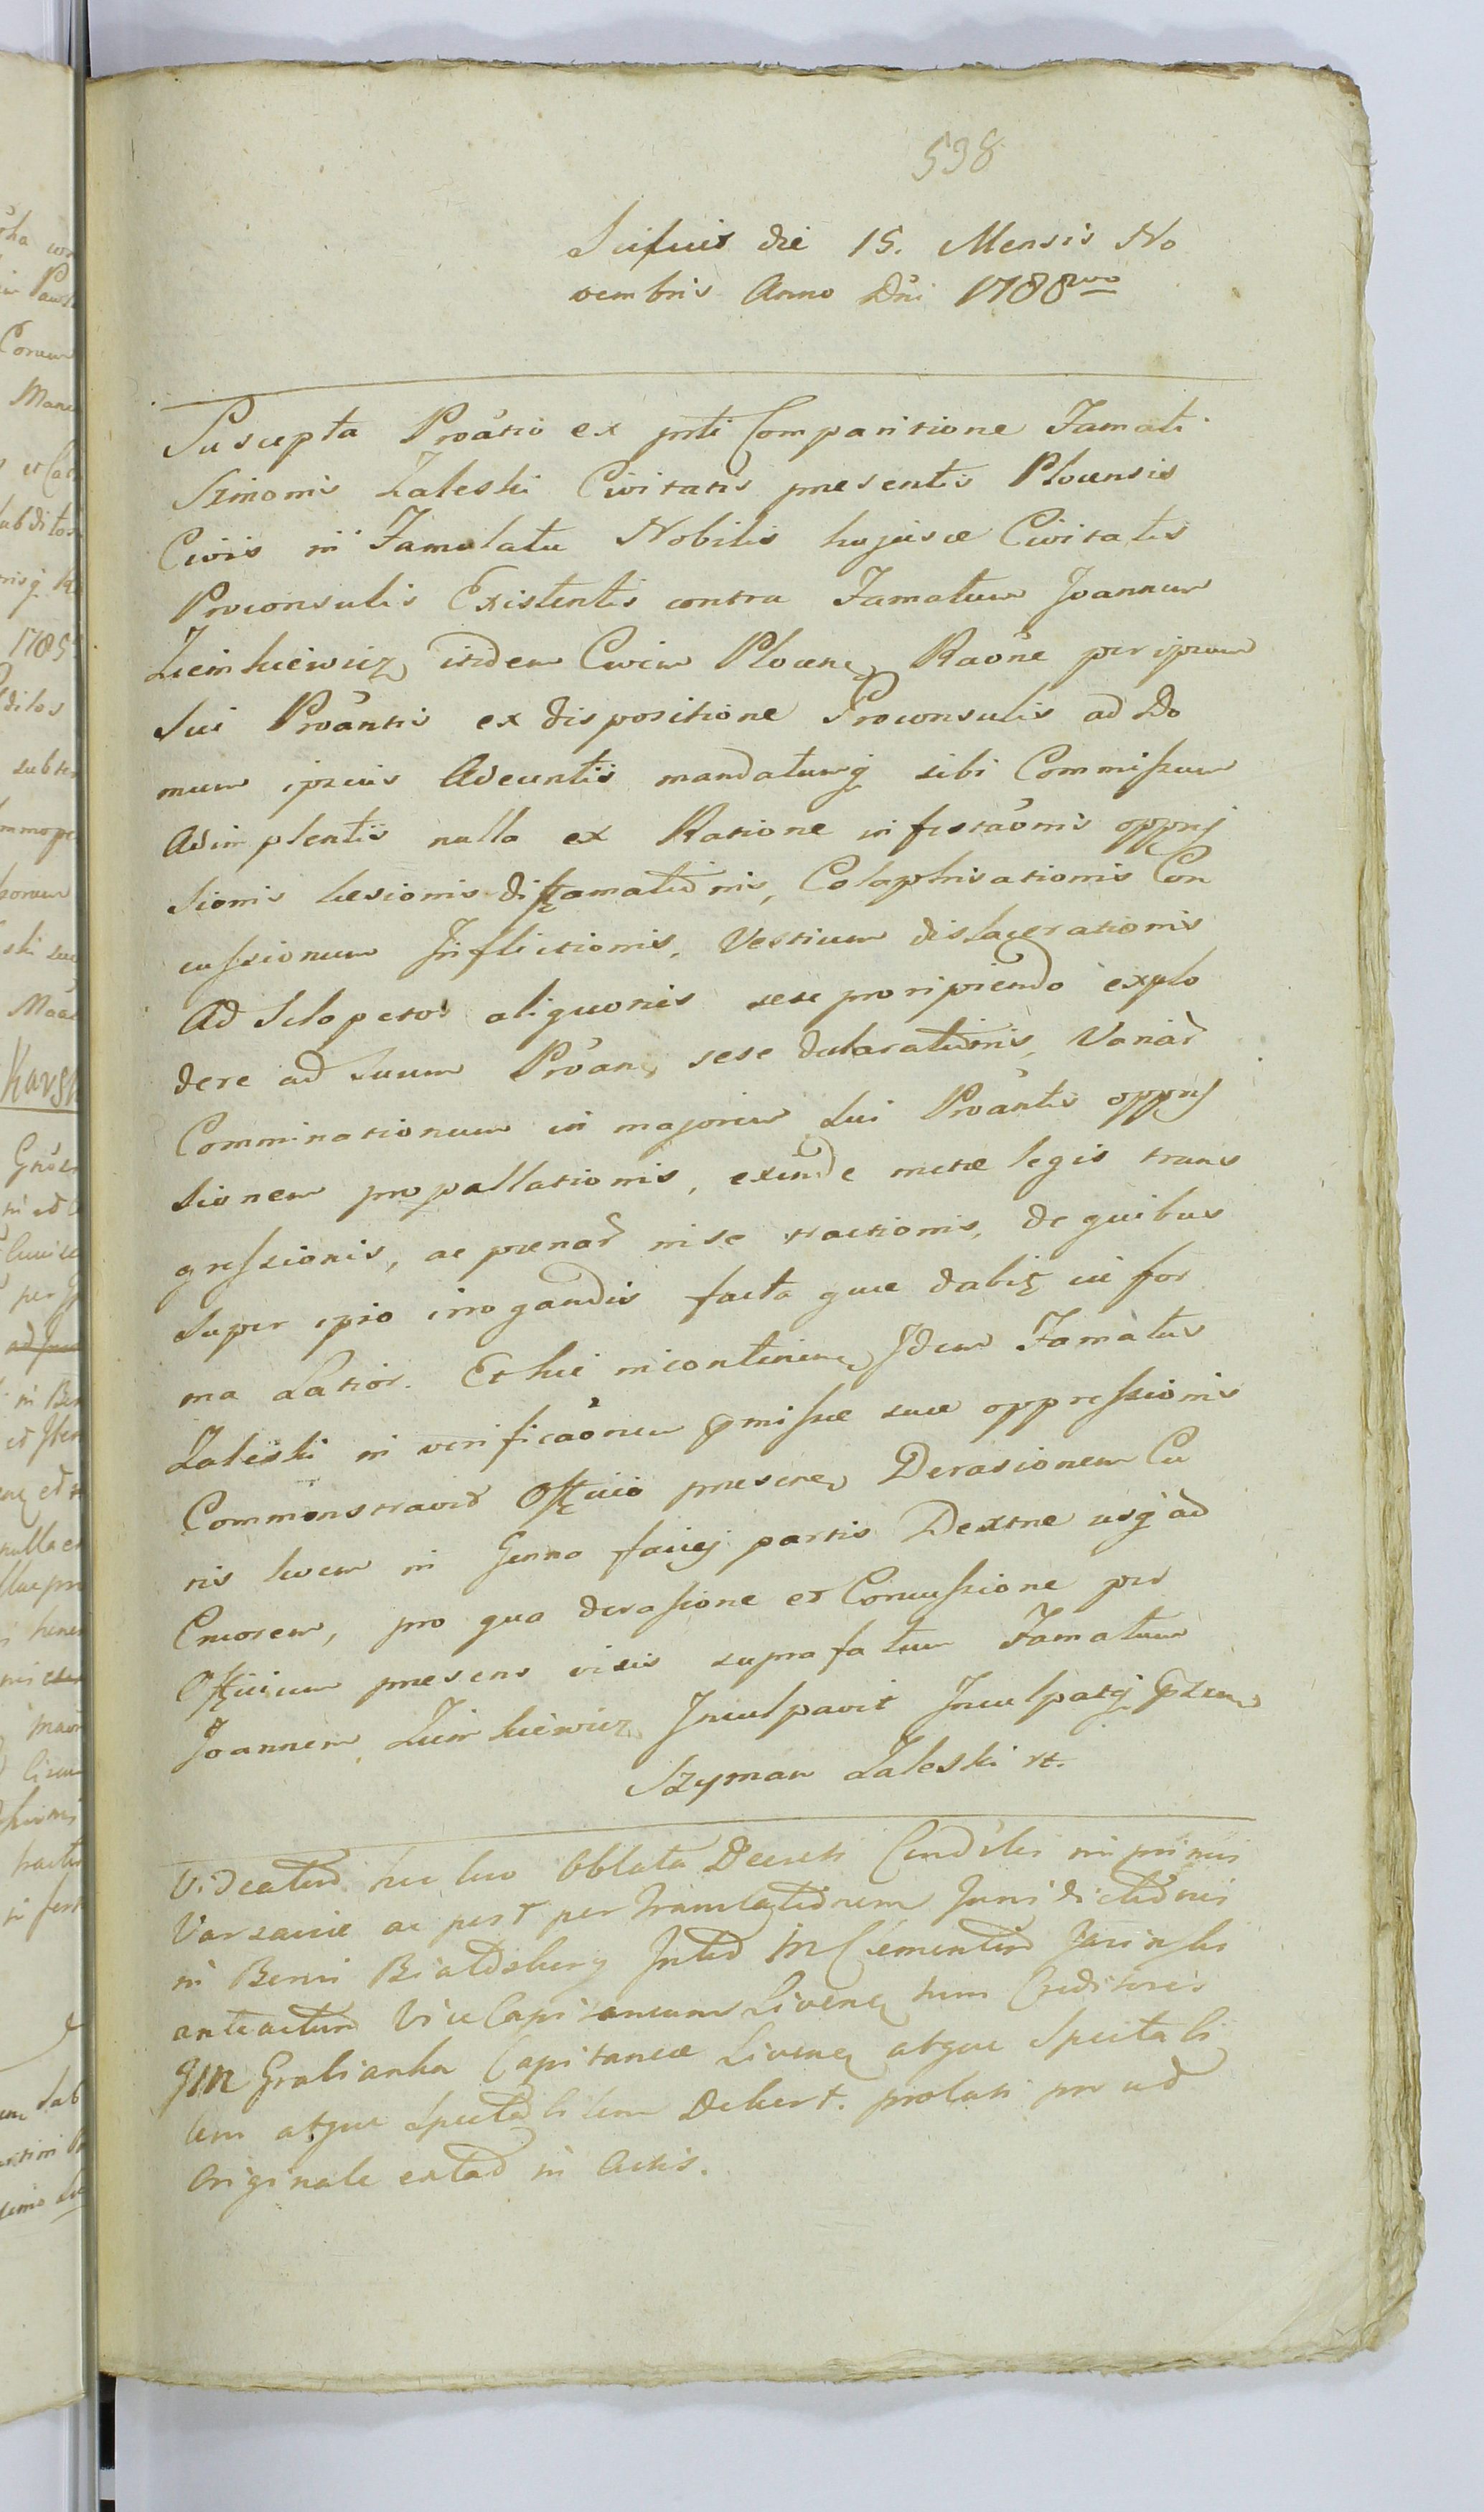 538
die 15. Mensis No
vembris Anno Dni 1788vo
Suscepta Proãtio ex pnti Comparitione Famati
Simonis Zaleski Civitatis presentis Plocensis
Civis in Famulatu Nobilis hujusce Civitatis
Proconsulis Existentis contra Famatum Joannem
itidem Civem Plocen, Raõne per ipsum
Sui Proãntis ex dispositione Proconsulis ad Do
mum ipsius Adeuntis mandatumq sibi Commissum
Adimplentis nulla ex Ratione infestaõnis oppres
sionis lesionis diffamationis, Colaphisationis Con
cussionum Inflictionis, Vestium dislacerationis
Ad Sclopetos aliquoties sese proripiendo explo
dere ad Suum Proãn, sese declarationis, Variar
Comminationum in majorem Sui Proãntis oppres
sionem propallationis, exinde metæ legis trans
gressionis, ac pænar in se tractionis, de quibus
Super ipso irrogandis facta quæ dabit in for
ma Latior. Et hic incontinen, Idem Famatus
Zaleski in verificaõnem pmissæ suæ oppressionis
Commonstravit Officio presen, Derasionem Cu
tis in faciej partis Dextræ usq ad
Cruorem, pro qua derasione et Concussione per
Officium presens visis suprafatum Famatum
Joannem Inculpavit Inculpatq pzens
Szyman Zaleski rt.
Videatur hic loco Oblata Decreti in primis
Varsaviæ ac post per Translationem Jurisdictionis
in
Vice Capitaneum Livens, tum Creditores
Capitaneæ Livens, atque Spectabi
lem atque Spectabilem Dekert. prolati prout
Originale extat in Actis.